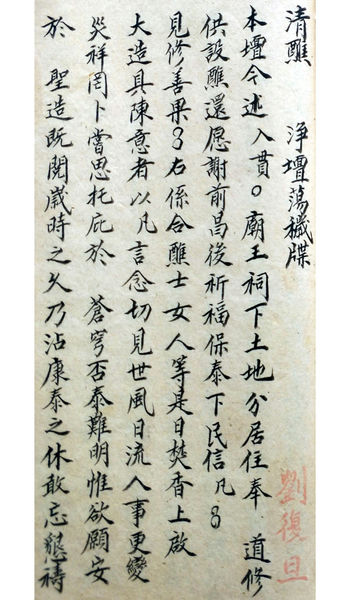 清醮　淨壇蕩穢牒
本壇今述入貫○廟王祠下土地分居住奉　道修
供設醮還愿謝前昌後祈福保泰下民信凡
見修善果　右係合醮士女人等是日焚香上啟
大造具陳意者以凡言念切見世風日流人事更變
災祥罔卜嘗思托庇於　蒼穹否泰難明惟欲願安
於　聖造既閱歲時之久乃沾康泰之休敢忘懇禱
劉復旦